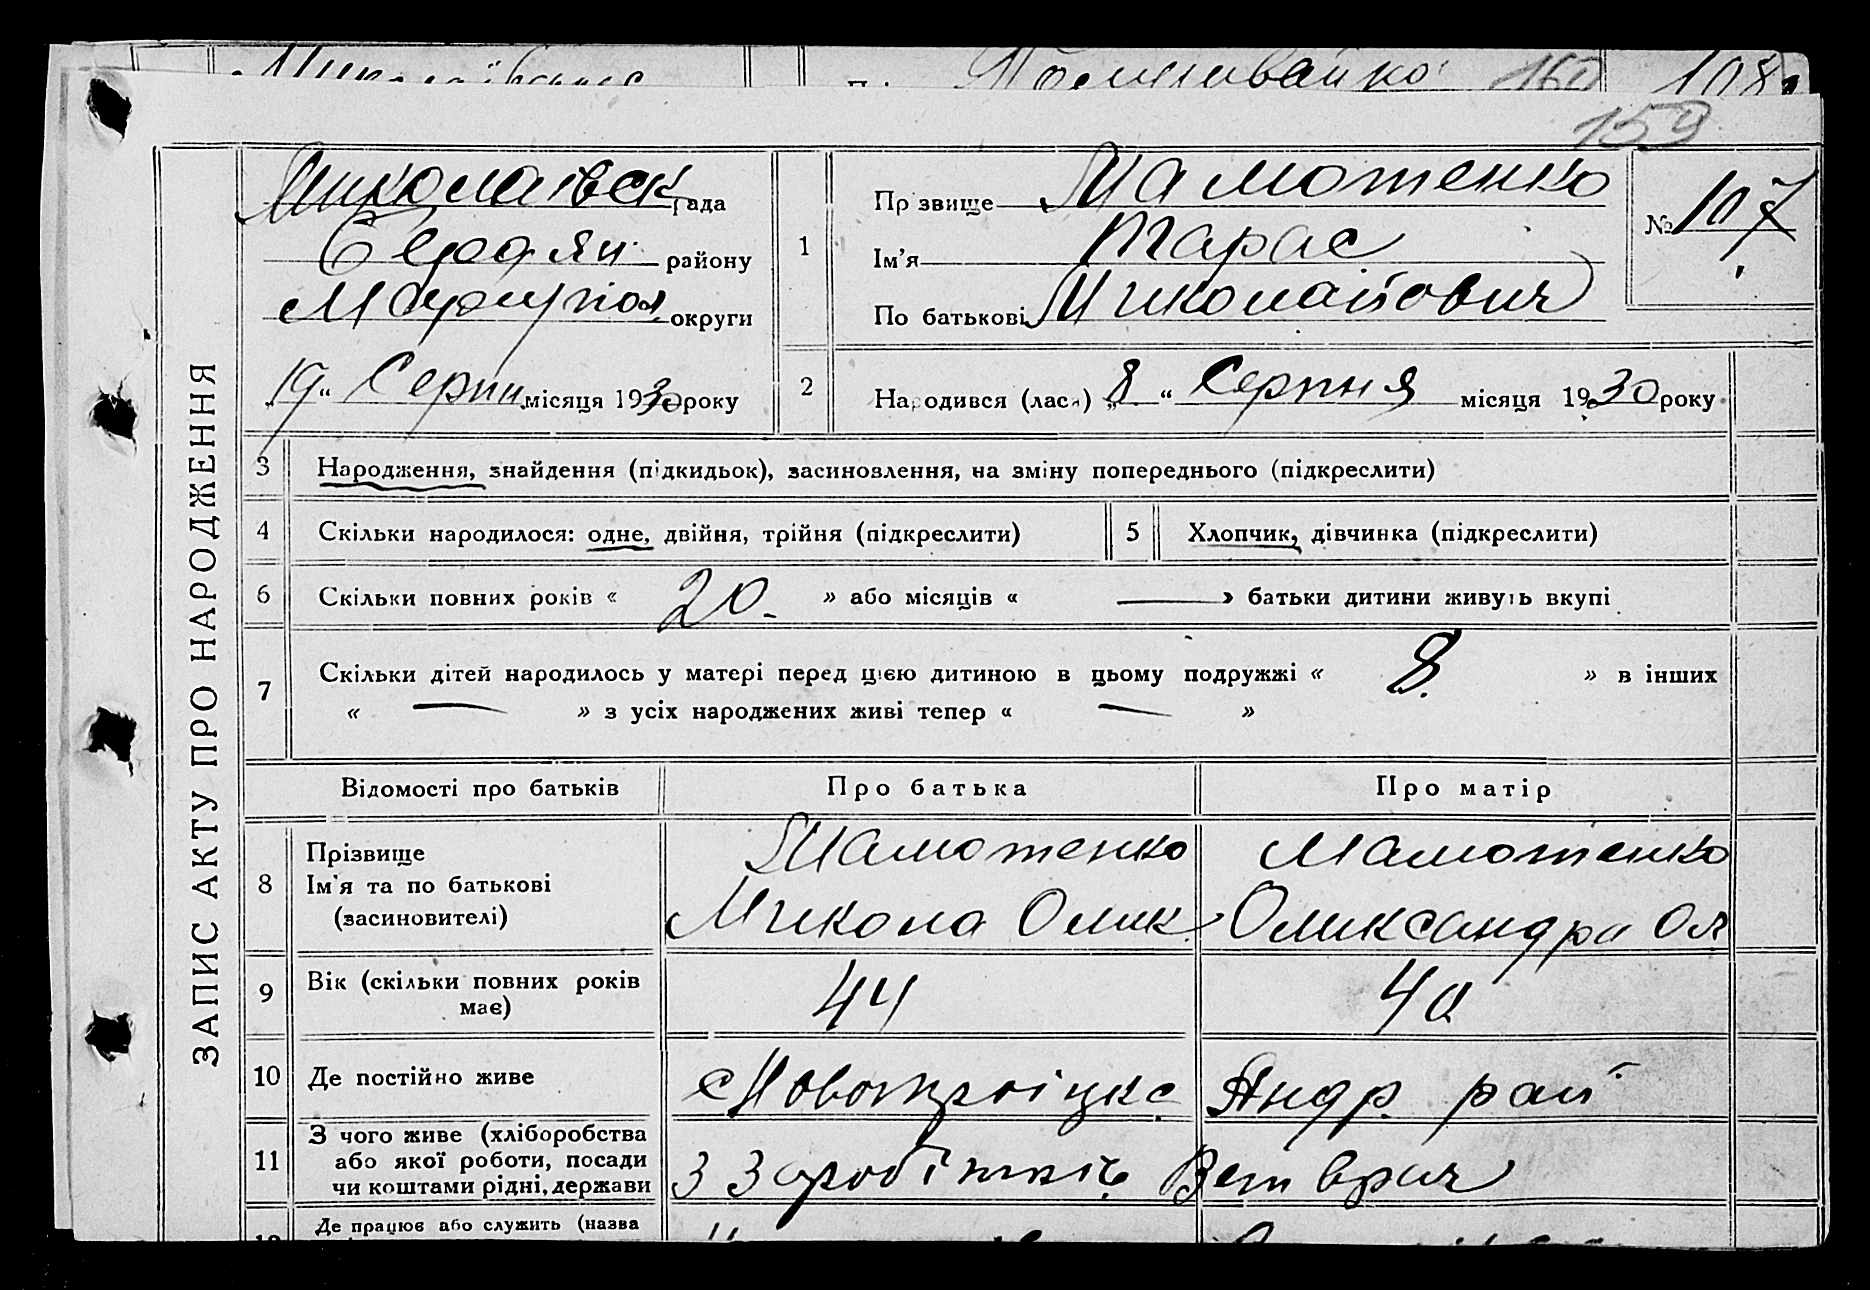 160 108
159
ЗАПИС АКТУ ПРО НАРОДЖЕННЯ
Миколаївск рада
Бердян району
Маріупол округи
„19“ Серпн місяця 1930 року
1
Прізвище Мамотенко
Ім'я Тарас
По батькові Миколайович
№ 107
2
Народився (лася) „8“ Серпня місяця 1930 року
3 Народження, знайдення (підкидьок), засиновлення, на зміну попереднього (підкреслити)
4 Скільки народилося: одне, двійня, трійня (підкреслити) 5 Хлопчик, дівчинка (підкреслити)
6 Скільки повних років « 20 » або місяців « — » батьки дитини живуть вкупі
7 Скільки дітей народилось у матері перед цією дитиною в цьому подружжі « 8. » в інших
« — » з усіх народжених живі тепер « — »
Відомості про батьків Про батька Про матір
8 Прізвище Мамотенко Мамотенко
Ім'я та по батькові
(засиновителі) Микола Олик Оликсандра Ол
9 Вік (скільки повних років має) 44 40
10 Де постійно живе с Новотроіцке Андр рай
11 З чого живе (хліборобства або якої роботи, посади чи коштами рідні, держави З Заробітків Ветврач
Де працює або служить (назва